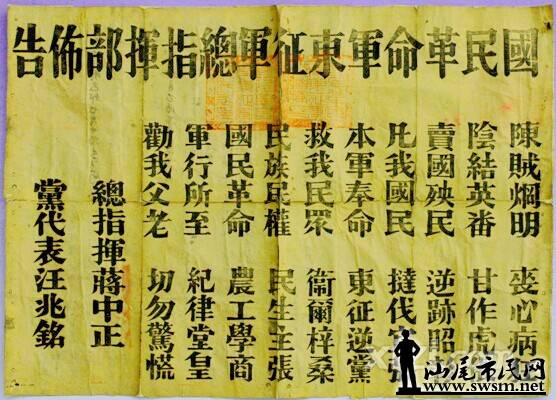 國民革命軍東征軍總指揮部佈告
陳賊烱明 喪心病
陰結英番 甘作虎
賣國殃民 逆跡昭
凡我國民 撻伐 張
本軍奉命 東征逆黨
救我民眾 衞爾梓桑
民族民權 民生主張
國民革命 農工學商
軍行所至 紀律堂皇
勸我父老 切勿驚慌
總指揮蔣中正
黨代表汪兆銘
汕尾市民网
www.swsm.net